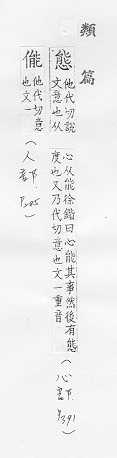 類篇
態 他代切說文意也从心从能徐鍇曰心能其事然後有態度也又乃代切意也文一重音(心部 P.391)
㑷 他代切意也文一(人部